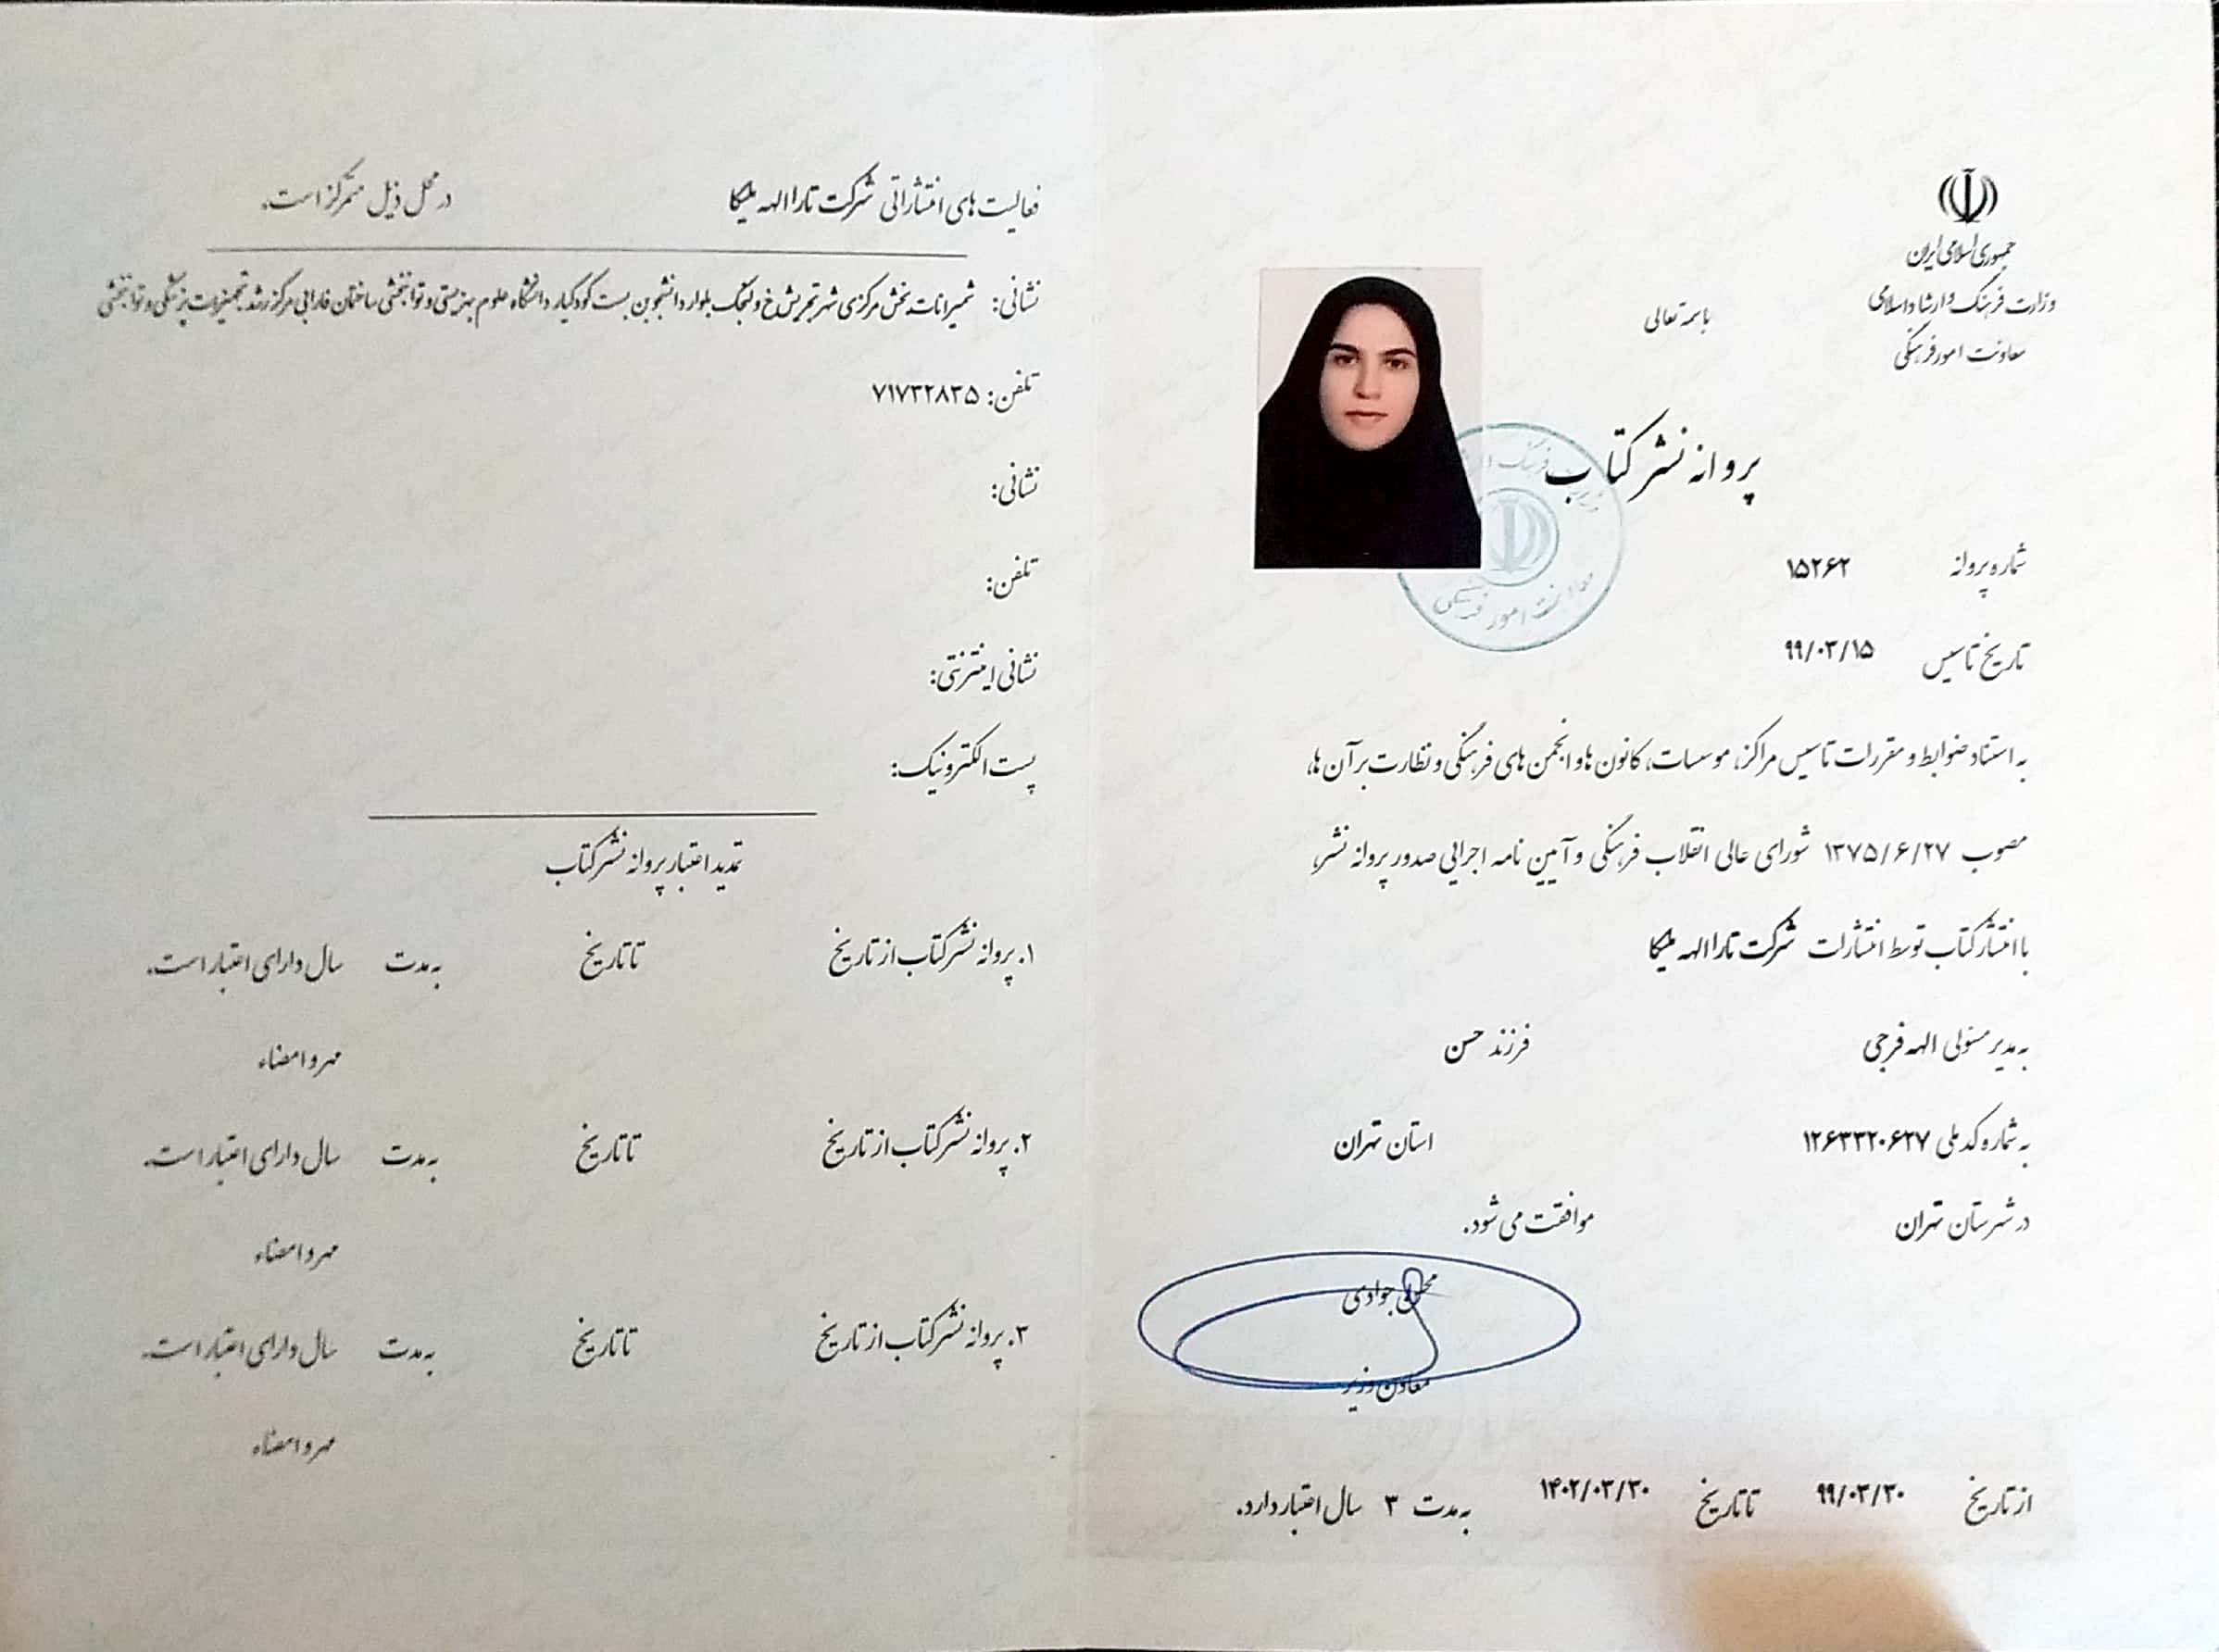 جمهوری اسلامی ایران
وزارت فرهنگ و ارشاد اسلامی
معاونت امور فرهنگی
باسمه تعالی
پروانه نشر کتاب
شماره پروانه ۱۵۲۶۲
تاریخ تاسیس ۹۹/۰۳/۱۵
به استناد ضوابط و مقررات تاسیس مراکز، موسسات، کانون ها و انجمن های فرهنگی و نظارت بر آن ها،
مصوب ۱۳۷۵/۶/۲۷ شورای عالی انقلاب فرهنگی و آیین نامه اجرایی صدور پروانه نشر،
با انتشار کتاب توسط انتشارات شرکت تارا الهه ملیکا
به مدیر مسئولی الهه فرجی فرزند حسن
به شماره کد ملی ۱۲۶۳۳۲۰۶۲۷ استان تهران
در شهرستان تهران موافقت می شود.
جوادی
معاون وزیر
از تاریخ ۹۹/۰۳/۳۰ تا تاریخ ۱۴۰۲/۰۳/۳۰ به مدت ۳ سال اعتبار دارد.
معاونت امور فرهنگی
فعالیت های انتشاراتی شرکت تارا الهه ملیکا در محل ذیل متمرکز است.
نشانی: شمیرانات بخش مرکزی شهر تجریش خ ولنجک بلوار دانشجو بن بست کودکیار دانشگاه علوم بهزیستی و توانبخشی ساختمان فارابی مرکز رشد تجهیزات پزشکی و توانبخشی
تلفن: ۷۱۷۳۲۸۳۵
نشانی:
تلفن:
نشانی اینترنتی:
پست الکترونیک:
تمدید اعتبار پروانه نشر کتاب
۱. پروانه نشر کتاب از تاریخ تا تاریخ به مدت سال دارای اعتبار است.
مهر و امضاء
۲. پروانه نشر کتاب از تاریخ تا تاریخ به مدت سال دارای اعتبار است.
مهر و امضاء
۳. پروانه نشر کتاب از تاریخ تا تاریخ به مدت سال دارای اعتبار است.
مهر و امضاء